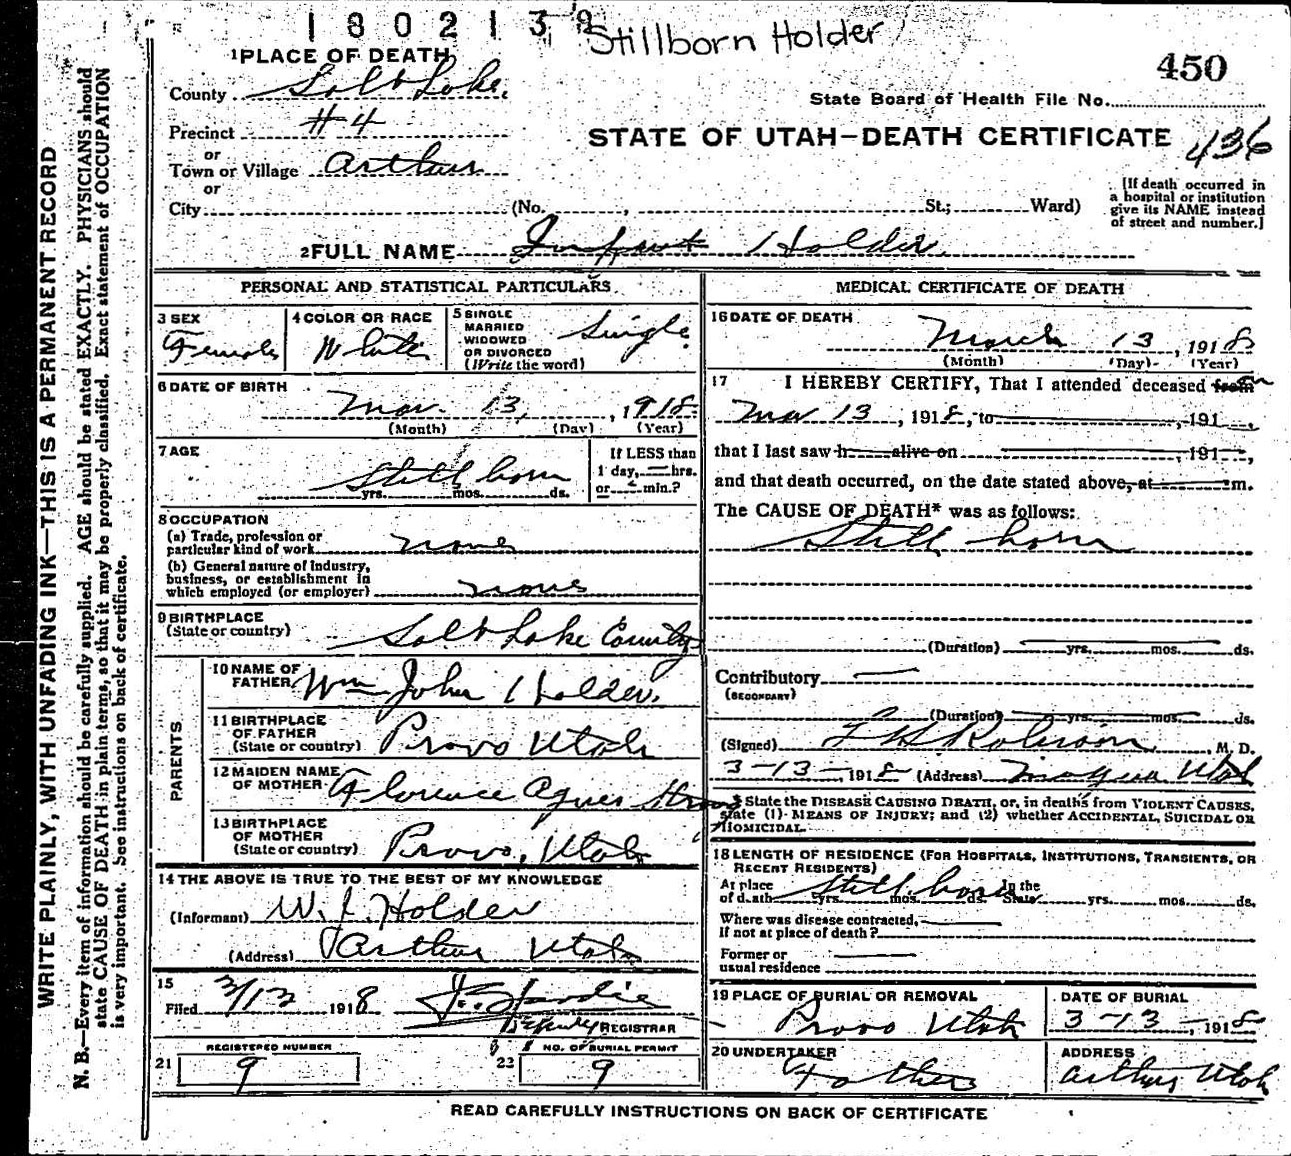 1802139
Stillborn Holder
450
1 PLACE OF DEATH
County Salt Lake.
State Board of Health File No.
Precinct #4
STATE OF UTAH—DEATH CERTIFICATE 436
or
Town or Village Arthur
or
City (No. , St.; Ward)
[If death occurred in
a hospital or institution
give its NAME instead
of street and number.]
2 FULL NAME Infant Holder
PERSONAL AND STATISTICAL PARTICULARS
3 SEX
Female
4 COLOR OR RACE
White
5 SINGLE
MARRIED
WIDOWED
OR DIVORCED
(Write the word)
Single
6 DATE OF BIRTH
Mar. 13, , 1918
(Month) (Day) (Year)
7 AGE
Still born
yrs. mos. ds.
If LESS than
1 day, — hrs.
or — min.?
8 OCCUPATION
(a) Trade, profession or
particular kind of work none
(b) General nature of Industry,
business, or establishment in
which employed (or employer) none
9 BIRTHPLACE
(State or country) Salt Lake County
PARENTS
10 NAME OF
FATHER Wm John Holder.
11 BIRTHPLACE
OF FATHER
(State or country) Provo Utah
12 MAIDEN NAME
OF MOTHER Florence Agnes
13 BIRTHPLACE
OF MOTHER
(State or country) Provo, Utah
14 THE ABOVE IS TRUE TO THE BEST OF MY KNOWLEDGE
(Informant) W. J. Holder
(Address) Arthur Utah
15
Filed 3/13 1918
Deputy REGISTRAR
REGISTERED NUMBER
21 9
NO. OF BURIAL PERMIT
22 9
MEDICAL CERTIFICATE OF DEATH
16 DATE OF DEATH
March 13 , 1918
(Month) (Day) (Year)
17 I HEREBY CERTIFY, That I attended deceased from
Mar 13 , 1918, to , 191 ,
that I last saw h alive on , 191 ,
and that death occurred, on the date stated above, at m.
The CAUSE OF DEATH* was as follows:
Still born
(Duration) yrs. mos. ds.
Contributory —
(SECONDARY)
(Duration) yrs. mos. ds.
(Signed) Robinson , M. D.
3-13- 1918 (Address) Magna Utah
* State the DISEASE CAUSING DEATH, or, in deaths from VIOLENT CAUSES,
state (1) MEANS OF INJURY; and (2) whether ACCIDENTAL, SUICIDAL OR
HOMICIDAL.
18 LENGTH OF RESIDENCE (FOR HOSPITALS, INSTITUTIONS, TRANSIENTS, OR
RECENT RESIDENTS)
At place
of death Still born yrs. mos. ds. In the State yrs. mos. ds.
Where was disease contracted,
If not at place of death?
Former or
usual residence
19 PLACE OF BURIAL OR REMOVAL
Provo Utah
DATE OF BURIAL
3-13- , 1918
20 UNDERTAKER
Father
ADDRESS
Arthur Utah
READ CAREFULLY INSTRUCTIONS ON BACK OF CERTIFICATE
WRITE PLAINLY, WITH UNFADING INK—THIS IS A PERMANENT RECORD
N. B.—Every item of information should be carefully supplied. AGE should be stated EXACTLY. PHYSICIANS should
state CAUSE OF DEATH in plain terms, so that it may be properly classified. Exact statement of OCCUPATION
is very important. See instructions on back of certificate.